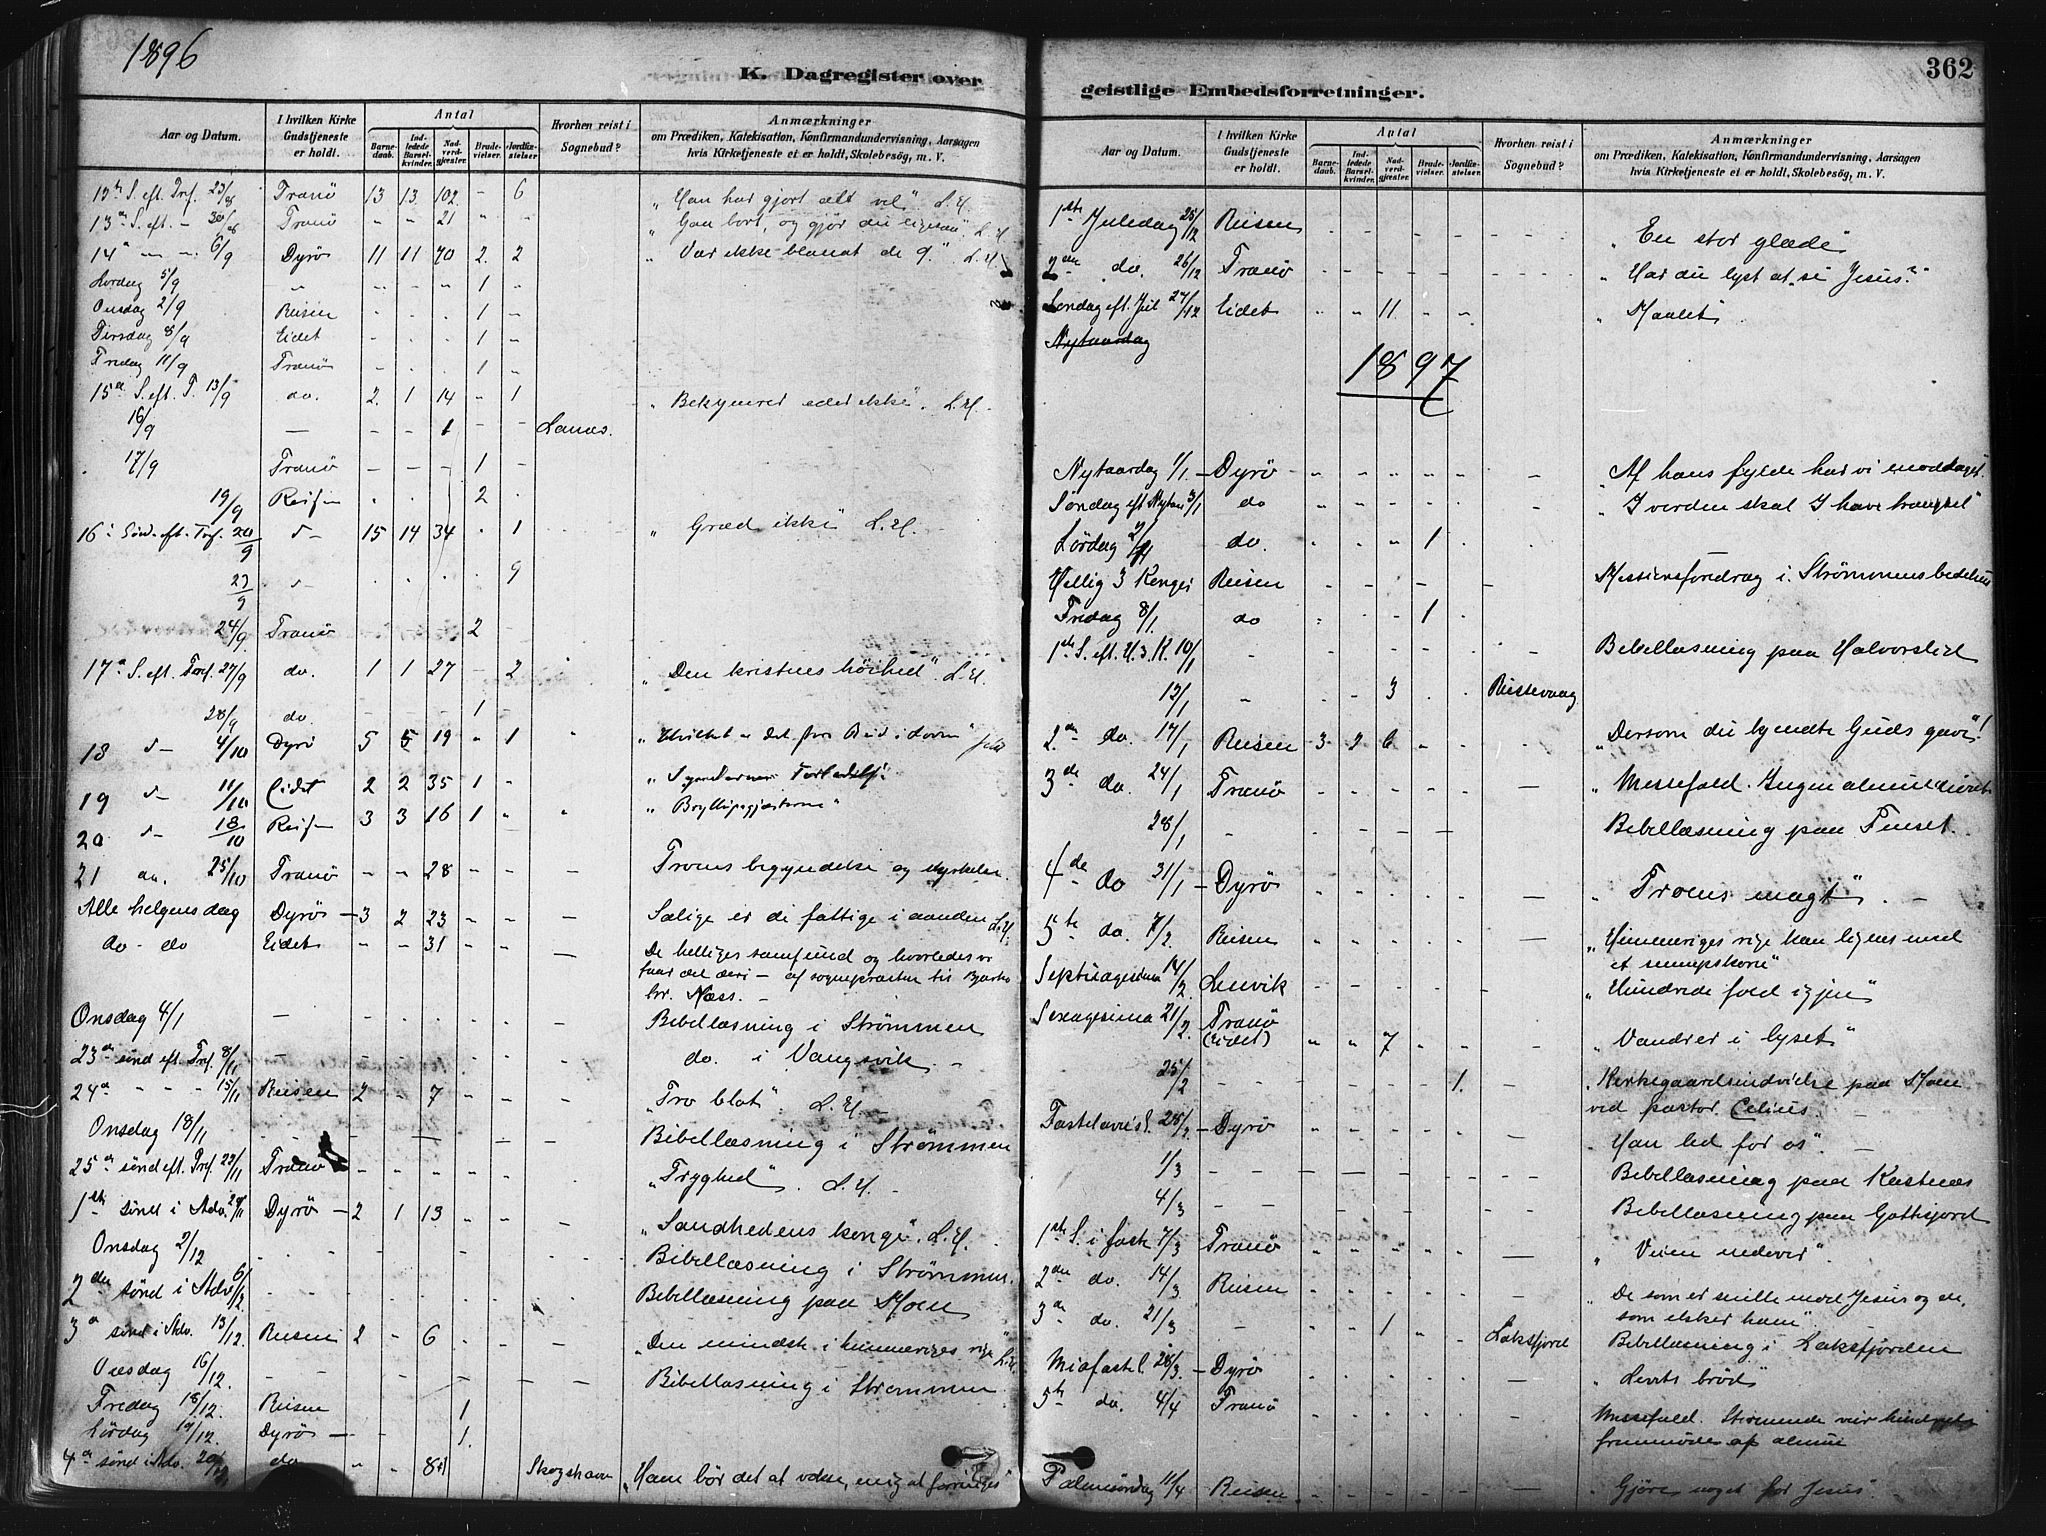 1896
K. Dagregister over
Aar og Datum.
I hvilken Kirke Gudstjeneste er holdt.
Antal
Barnedaab.
Indledede Barselkvinder.
Nadverdgjæster.
Brudevielser.
Jordfæstelser
Hvorhen reist i Sognebud?
Anmærkninger
om Prædiken, Katekisation, Konfirmandundervisning, Aarsagen
hvis Kirketjeneste ei er holdt, Skolebesög, m. V.
12te S. eft. Tref. 23/8 Tranö 13 13 102 - 6 "Han har gjort alt vel" L.H.
13de S. eft. - 30/8 Tranö " " 21 " " "Gaa bort, og gjør du ligesaa" L.H.
14de " " 6/9 Dyrö 11 11 70 2 2 "Var ikke blandt de 9". L.H.
Lördag 5/9 " 1
Onsdag 2/9 Reisen 1
Tirsdag 8/9 Eidet 1
Fredag 11/9 Tranö 1
15de S. eft. T. 13/9 do. 2 1 14 - 1 "Bekymrer eder ikke". L.H.
16/9 - - - 1 - -
17/9 Tranö - - - 1 -
19/9 Reis- 2
16 Sönd. eft. Tref. 20/9 15 14 34 1 "Græd ikke" L.H.
23/9 9
24/9 Tranö 2
17de S. eft. Tref. 27/9 do. 1 1 27 - 2 "Den kristnes höihed" L.H.
28/9 do. 1
18 4/10 Dyrö 5 5 19 " 1 "Hvilket er det störste Bud i loven"
19 11/10 Eidet 2 2 35 1 "Syndernes Forladelse"
20 18/10 Reis- 3 3 16 1 "Bryllupsgjæsterne"
21 do. 25/10 Tranö - - 28 - - Troens begyndelse og styrkelse.
Alle helgens dag Dyrö 3 2 23 - - - Salige er de fattige i aanden L.H.
do - do Eidet - - 31 - - De helliges samfund og hvorledes vi
faar del deri - af sognepræsten til
hr. Næss. -
Onsdag 4/11 - Bibellæsning i Strömmen
23de sönd eft. Tref. 8/11 - do. i Vangsvik. -
24de " - - 15/11 Reisen 2 - 7 "Tro blot". L.H. -
Onsdag 18/11 Bibellæsning i Strömmen
25de sönd eft. Tref. 22/11 Tranö "Tryghed". L.H. -
1ste sönd i Adv. 29/11 Dyrö - 2 1 13 "Sandhedens konge". L.H.
Onsdag 2/12 Bibellæsning i Strömmen.
2den sönd i Adv. 6/12 Bibellæsning paa Moen
3de sönd i Adv. 13/12 Reisen 2 - 6 "Den mindste i himmeriges rige" L.H.
Onsdag 16/12 Bibellæsning i Strömmen
Fredag 18/12 Reisen 1
Lördag 19/12 Dyrö - 1.
4de sönd i Adv. 20/12 do Skogshavn "Ham bör det at vokse, mig at forringes"
geistlige Embedsforretninger.
362
Aar og Datum.
I hvilken Kirke Gudstjeneste er holdt.
Antal
Barnedaab.
Indledede Barselkvinder.
Nadverdgjæster.
Brudevielser.
Jordfæstelser.
Hvorhen reist i Sognebud?
Anmærkninger
om Prædiken, Katekisation, Konfirmandundervisning, Aarsagen
hvis Kirketjeneste ei er holdt, Skolebesög, m. V.
1ste Juledag 25/12 Reisen "En stor glæde"
2den do. 26/12 Tranö "Har du lyst at se Jesus?"
Söndag eft. Jul 27/12 Eidet " " 11 " " "Maalet"
Nytaarsdag
1897
Nytaarsdag 1/1 - Dyrö "Af hans fylde har vi modtaget"
Söndag eft Nytaar 3/1 do "I verden skal I have trængsel"
Lördag 2/1 do. 1
Hellig 3 Konger Reisen Missionsforedrag i Strömmens bedehus
Fredag 8/1 do 1
1ste S. eft. H. 3. K. 10/1 - Bibellæsning paa Halvorslet
12/1 " 3
2den do. 17/1 Reisen 3 3 6 "Dersom du kjendte Guds gave"!
3de do. 24/1 Tranö Messefald. Ingen almue
28/1 - Bibellæsning paa Finset.
4de do 31/1 - Dyrö "Troens magt".
5te do. 7/2 Reisen "Himmeriges rige kan lignes med
et sennepskorn"
Septuagesima 14/2 Lenvik "Hundrede fold igjen"
Sexagesima 21/2 Tranö (Eidet) " " 7 "Vandrer i lyset"
25/2 1. Kirkegaardsindvielse paa Moen
ved pastor Celius. -
Fastelavns. 28/2 - Dyrö "Han led for os".
1/3 Bibellæsning paa Kastnes
4/3 Bibellæsning paa Gottsfjord
1ste S. i faste 7/3 Tranö "Veien nedover".
2den do. 14/3 Reisen "De som er snille mod Jesus og de,
som elsker ham"
3de do. 21/3 - 1 Laksfjord Bibellæsning i Laksfjorden
Midfastel. 28/3 - Dyrö "Livets bröd"
5te do. 4/4 Tranö Messefald. Stormende veir hindrede
fremmöde af almue
Palmesöndag 11/4 Reisen "Gjöre noget for Jesus"